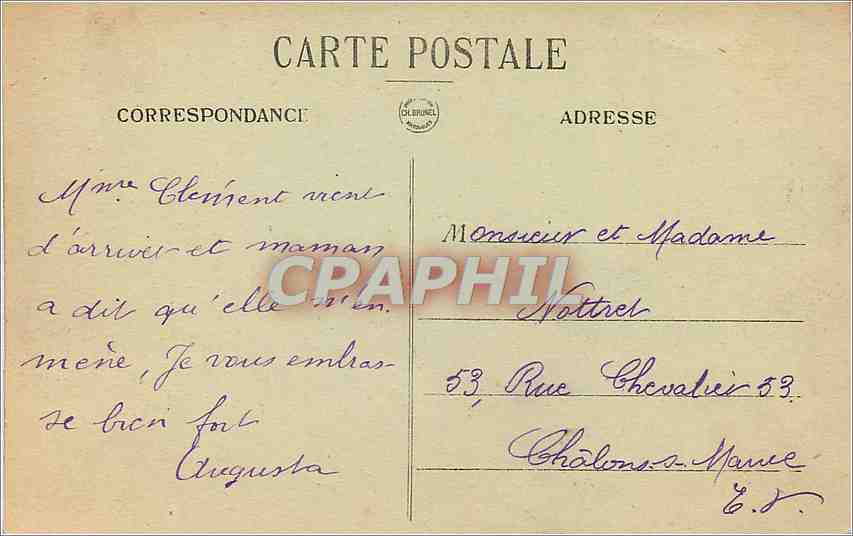 CARTE POSTALE
CORRESPONDANCE
CH. BRUNEL
ADRESSE
Mme Clément vient
d'arriver et maman
a dit qu'elle m'en
mène, Je vous embras-
se bien fort
Augusta
Monsieur et Madame
Nottret
53, Rue Chevalier 53.
Châlons-s-Marne
E.V.
CPAPHIL